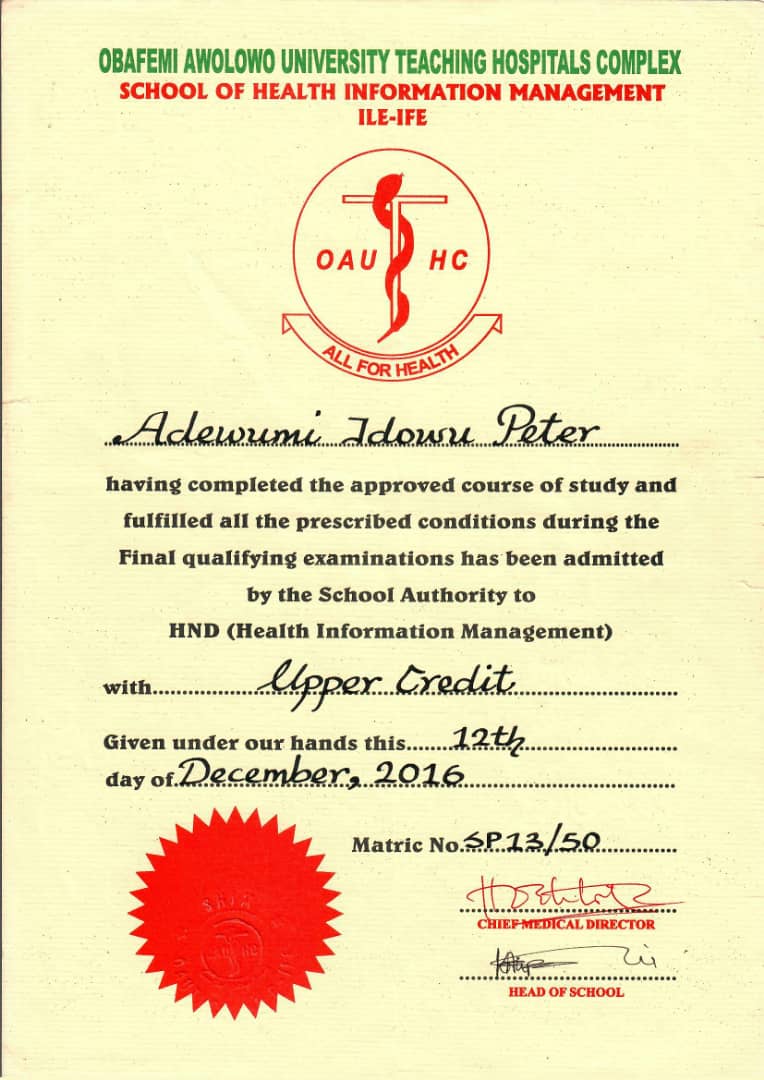 OBAFEMI AWOLOWO UNIVERSITY TEACHING HOSPITALS COMPLEX
SCHOOL OF HEALTH INFORMATION MANAGEMENT
ILE-IFE
OAU HC
ALL FOR HEALTH
Adewumi Idowu Peter
having completed the approved course of study and
fulfilled all the prescribed conditions during the
Final qualifying examinations has been admitted
by the School Authority to
HND (Health Information Management)
with Upper Credit
Given under our hands this 12th
day of December, 2016
Matric No. SP13/50
CHIEF MEDICAL DIRECTOR
HEAD OF SCHOOL